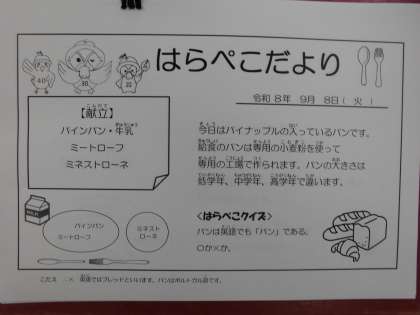 はらぺこだより
令和8年 9月 8日( 火 )
【献立】
パインパン・牛乳
ミートローフ
ミネストローネ
今日はパイナップルの入っているパンです。
給食のパンは専用の小麦粉を使って
専用の工場で作られます。パンの大きさは
低学年、中学年、高学年で違います。
MILK
パインパン
ミートローフ
ミネスト
ローネ
<はらぺこクイズ>
パンは英語でも「パン」である。
〇か×か。
こたえ …× 英語ではブレッドといいます。パンはポルトガル語です。